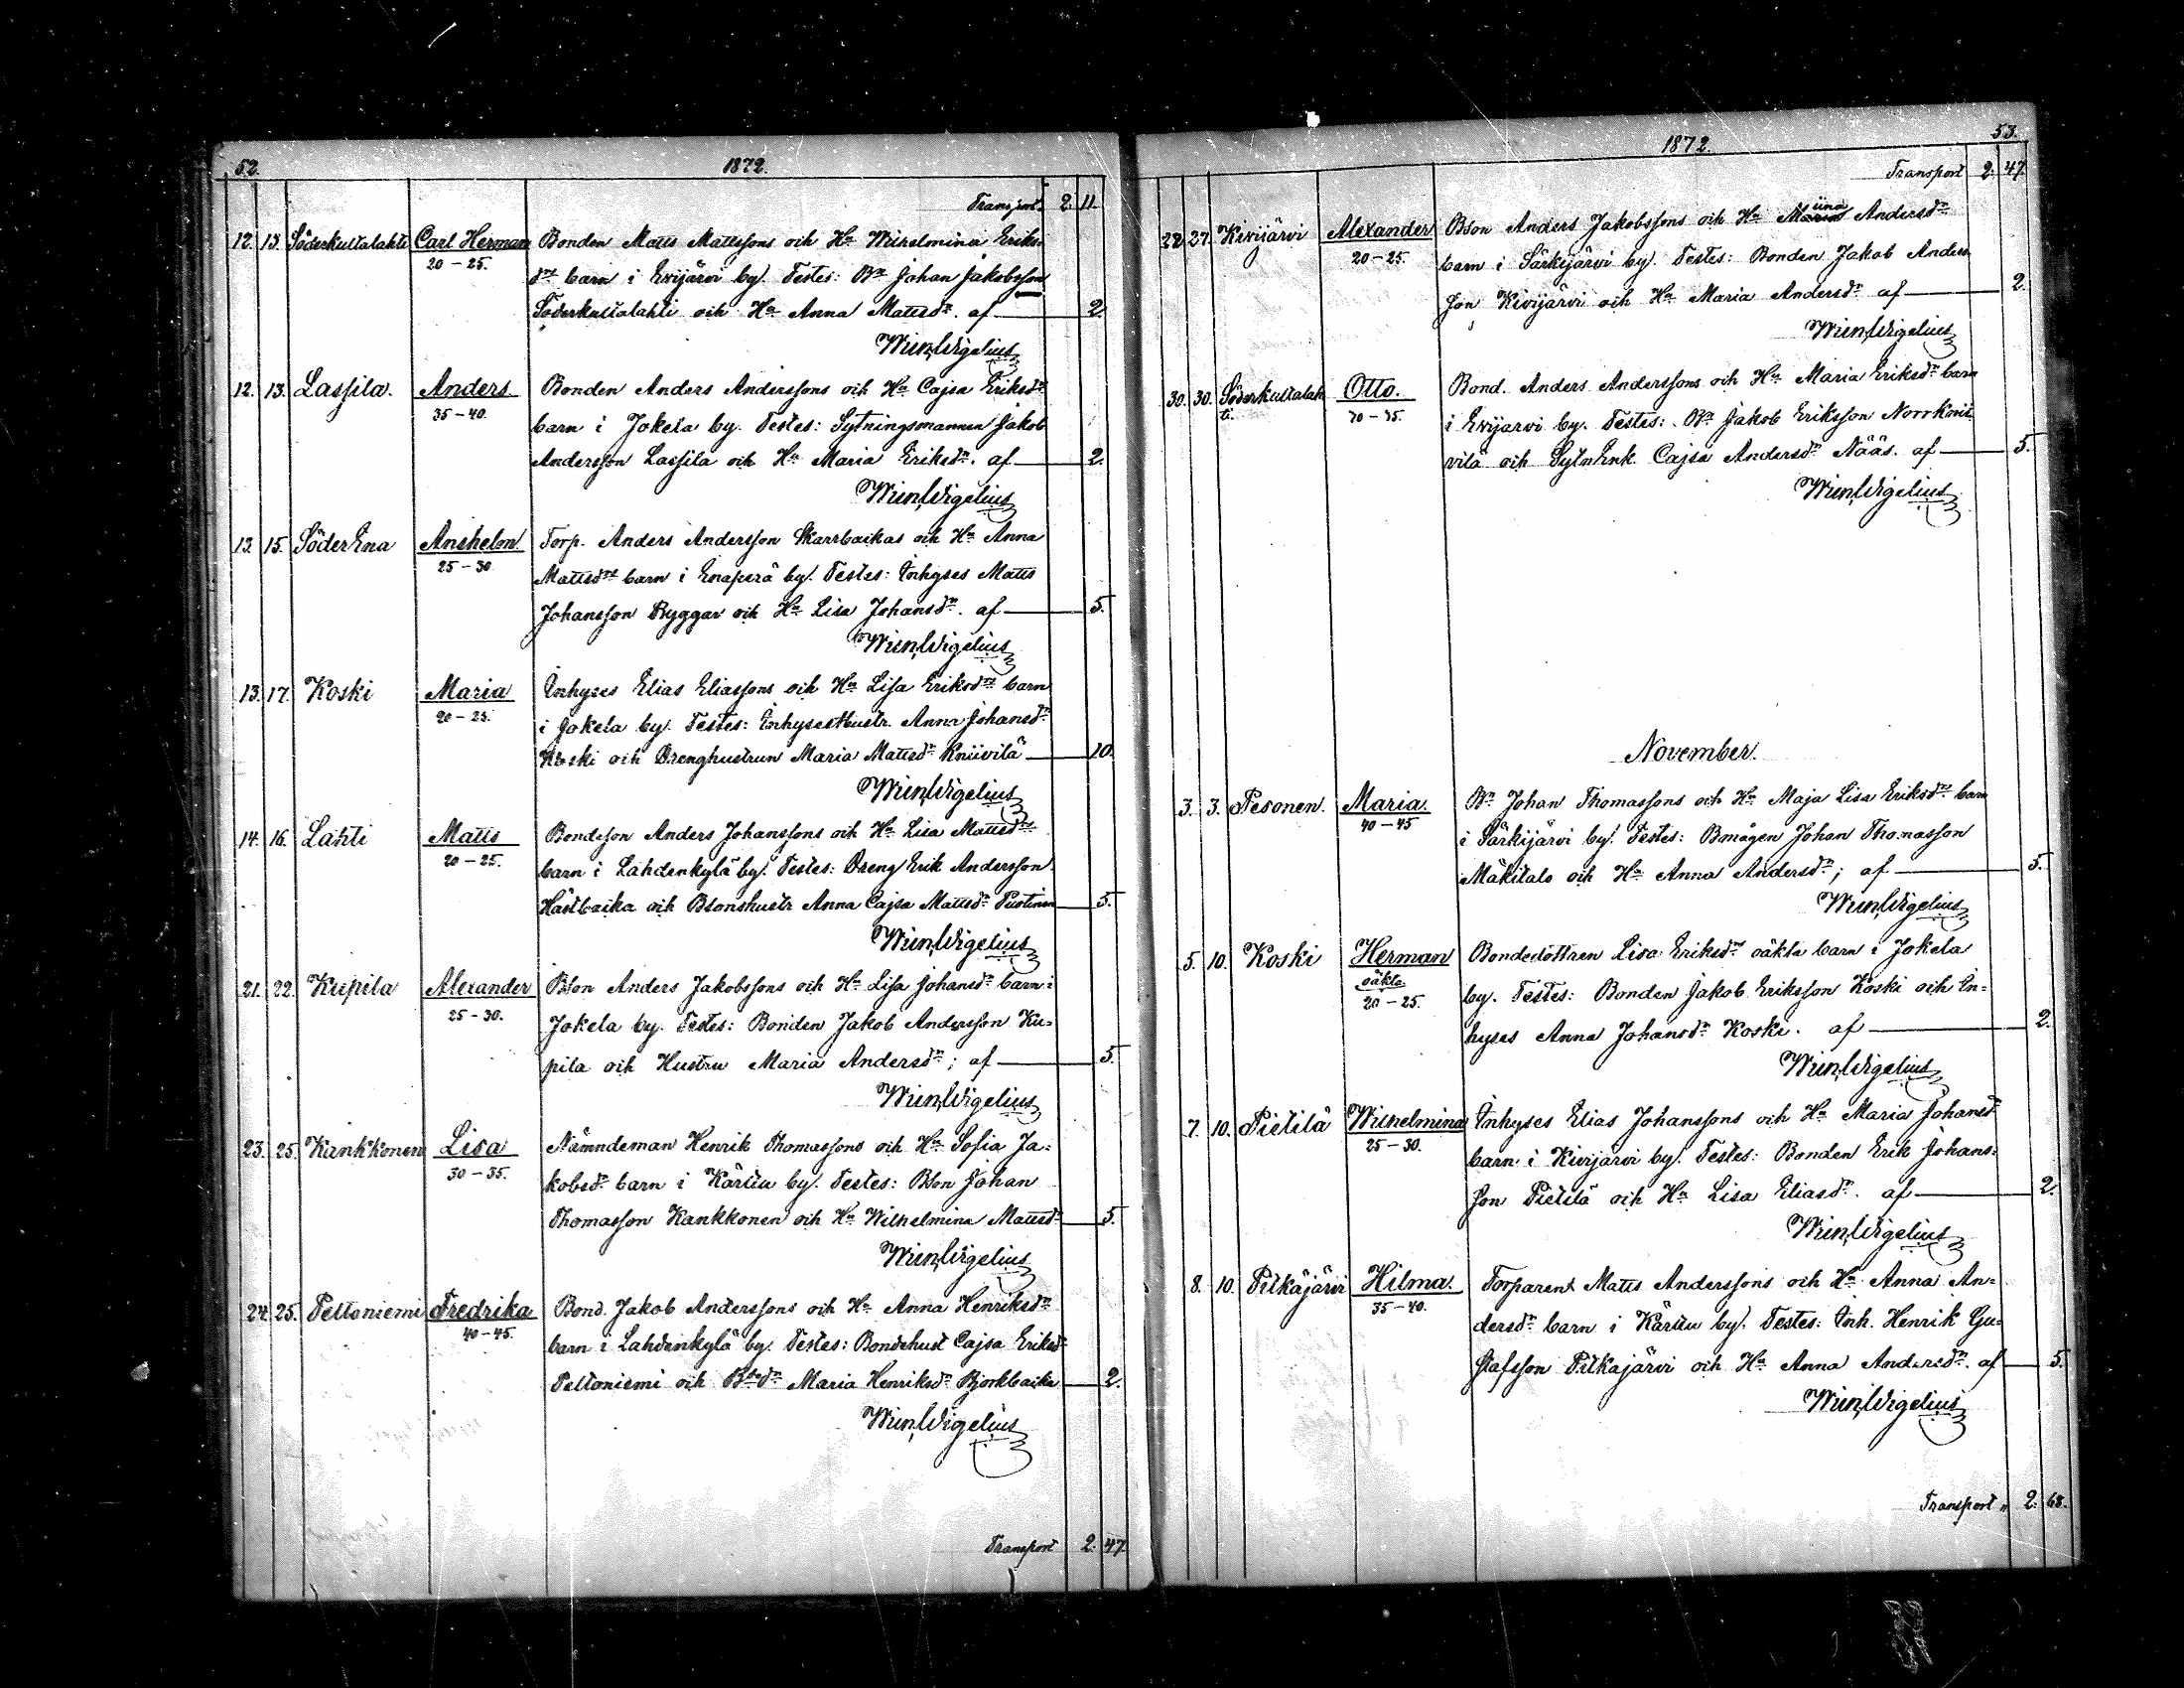 52.
1872.
Transport. 2. 11.
12. 13. Söderkultalahti Carl Herman Bonden Matts Mattssons och Hu Wilhelmina Eriks-
20-25. dr barn i Evijärvi by. Testes: Bn Johan Jakobsson
Söderkultalahti och Hu Anna Mattsdr. af 2.
WmWigelius
12. 13. Lassila. Anders Bonden Anders Anderssons och Hu Cajsa Eriksdr
35-40. barn i Jokela by. Testes: Sytningsmannen Jakob
Andersson Lassila och Hu Maria Eriksdr. af 2.
WmWigelius
13. 15. SöderEna Anshelm Torp. Anders Andersson Skarrbackas och Hu Anna
25-30 Mattsdrs barn i Enaperä by. Testes: Inhyses Matts
Johansson Byggar och Hu Lisa Johansdr. af 5.
WmWigelius
13. 17. Koski Maria Inhyses Elias Eliassons och Hu Lisa Eriksdrs barn
20-25. i Jokela by. Testes: Inhyseshustr. Anna Johansdr
Koski och Drenghustrun Maria Mattsdr Kniivilä 10.
WmWigelius
14. 16. Lahti Matts Bondeson Anders Johanssons och Hu Lisa Mattsdrs
20-25. barn i Lahdenkylä by. Testes: Dreng Erik Andersson
Hästbacka och Bsonshustr Anna Cajsa Mattsdr 5.
WmWigelius
21. 22. Kupila Alexander Bson Anders Jakobssons och Hu Lisa Johansdr barn i
25-30. Jokela by. Testes: Bonden Jakob Andersson Ku-
pila och Hustru Maria Andersdr; af 5.
WmWigelius
23. 25. Kankkonen Lisa Nämndeman Henrik Thomassons och Hu Sofia Ja-
30-35. kobsdr barn i Kärüu by. Testes: Bson Johan
Thomasson Kankkonen och Hu Wilhelmina Mattsdr 5.
WmWigelius
24. 25. Peltoniemi Fredrika Bond. Jakob Anderssons och Hu Anna Henriksdr
40-45. barn i Lahdenkylä by. Testes: Bondehust Cajsa Eriksdr
Peltoniemi och Maria Henriksdr Björkbacka 2.
WmWigelius
Transport 2. 47.
53.
1872.
Transport 2. 47.
22. 27. Kivijärvi Alexander Bson Anders Jakobssons och Hu iina Andersdr
20-25. barn i Särkijärvi by. Testes: Bonden Jakob Anders
son Kivijärvi och Hu Maria Andersdr af 2.
WmWigelius
30. 30. Söderkultalah Otto. Bond. Anders Anderssons och Hu Maria Eriksdr barn
ti. i Evijärvi by. Testes: Bn Jakob Eriksson Norrknii
vilä och SytnEnk. Cajsa Andersdr Nääs. af 5.
WmWigelius
November.
3. 3. Pesonen. Maria. Bn Johan Thomassons och Hu Maja Lisa Eriksdrs barn
40-45 i Särkijärvi by. Testes: Bmågen Johan Thomasson
Mäkitalo och Hu Anna Andersdr; af 5.
WmWigelius
5. 10. Koski Herman Bondedottren Lisa Eriksdrs oäkta barn i Jokela
oäkta
20-25. by. Testes: Bonden Jakob Eriksson Koski och In-
hyses Anna Johansdr Koski. af 2.
WmWigelius
7. 10. Pietilä Wilhelmina Inhyses Elias Johanssons och Hu Maria Johansdr
25-30. barn i Kivijärvi by. Testes: Bonden Erik Johans-
son Pietilä och Hu Lisa Eliasdr. af 2.
WmWigelius
8. 10. Pitkäjärvi Hilma. Torparen Matts Anderssons och Hu Anna An-
35-40. dersdr barn i Kärüu by. Testes: Inh. Henrik Gu-
stafsson Pitkäjärvi och Hu Anna Andersdr. af 5.
WmWigelius
Transport 2. 68.